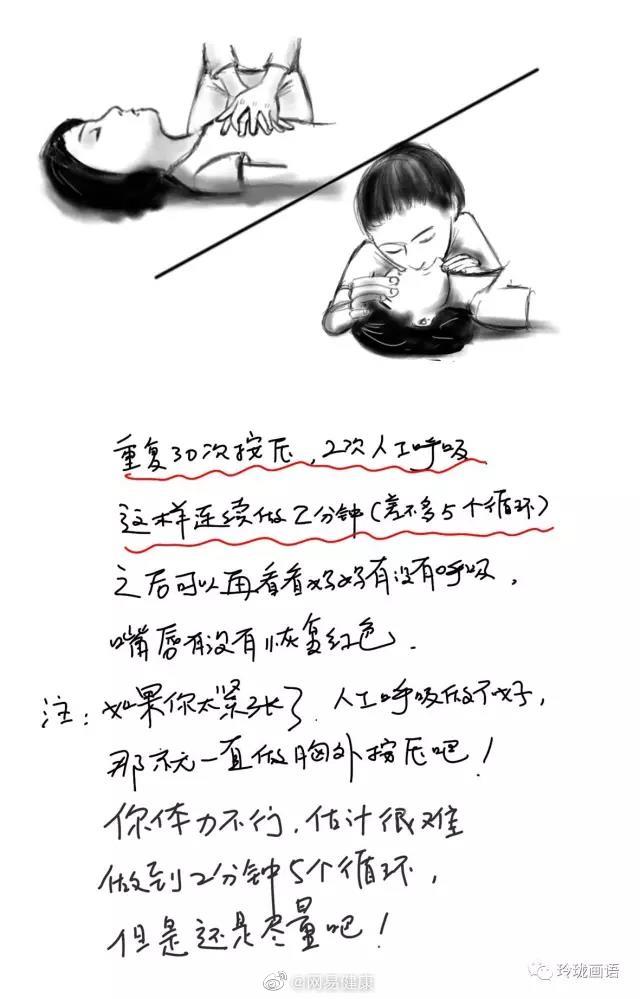 重复30次按压，2次人工呼吸
这样连续做2分钟（差不多5个循环）
之后可以再看看妈妈有没有呼吸，
嘴唇有没有恢复红色．
注：如果你太紧张了．人工呼吸做不好，
那就一直做胸外按压吧！
你体力不行，估计很难
做到2分钟5个循环，
但是还是尽量吧！
@网易健康
玲珑画语